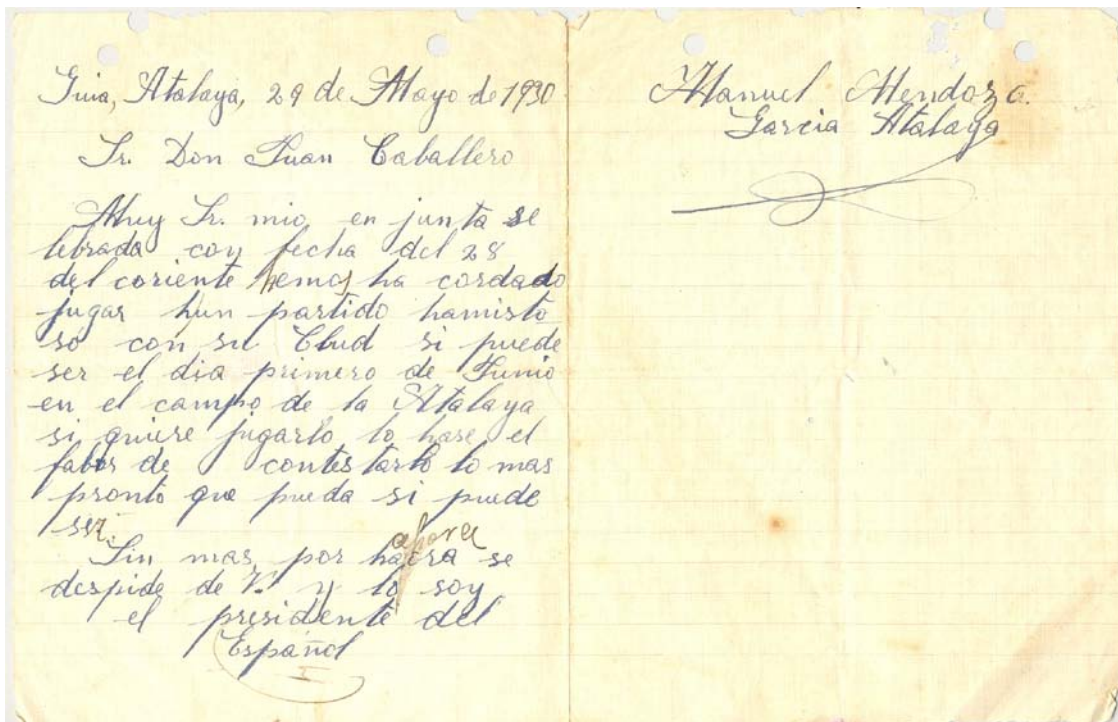 Guia, Atalaya, 29 de Mayo de 1930
Sr. Don Juan Caballero
Muy Sr. mio, en junta se
lebrada con fecha del 28
del coriente hemos ha cordado
jugar hun partido hamisto
so con su Clud si puede
ser el dia primero de Junio
en el campo de la Atalaya
si quiere jugarlo lo hase el
fabor de contestarlo lo mas
pronto que pueda si puede
ser.
ahora
Sin mas, por haora se
despide de V. y lo soy
el presidente del
Español
Manuel Mendoza.
Garcia Atalaya